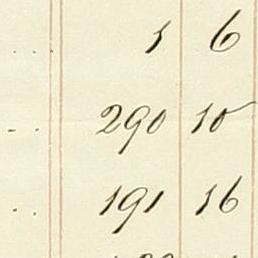 .. 1 6
.. 290 10
.. 191 16